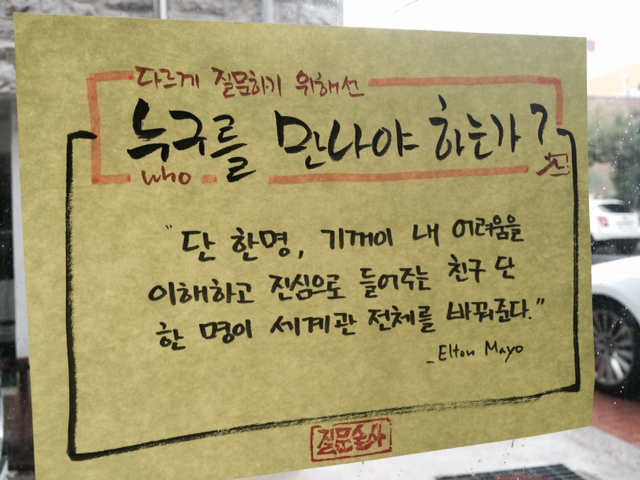 다르게 질문하기 위해선
누구를 만나야 하는가?
who
"단 한명, 기꺼이 내 어려움을
이해하고 진심으로 들어주는 친구 단
한 명이 세계관 전체를 바꿔준다."
_Elton Mayo
질문술사